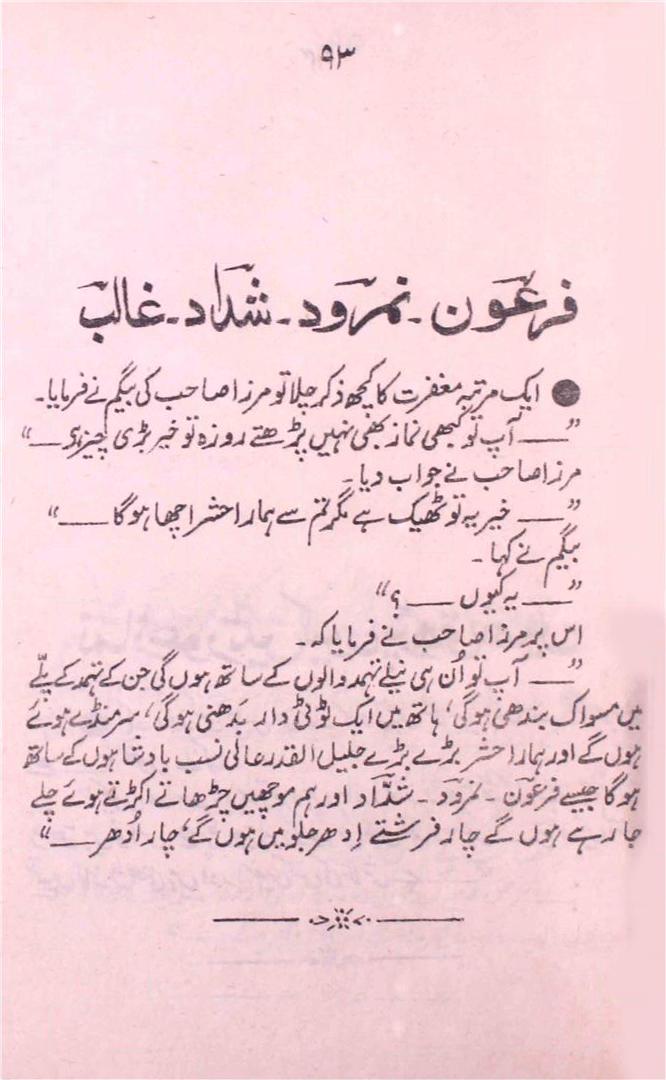 ۹۳
فرعون ۔ نمرود ۔ شداد ۔ غالب
● ایک مرتبہ مغفرت کا کچھ ذکر چلا تو مرزا صاحب کی بیگم نے فرمایا۔
”—— آپ تو کبھی نماز بھی نہیں پڑھتے روزہ تو خیر بڑی چیز ہی ——“
مرزا صاحب نے جواب دیا۔
”—— خیر یہ تو ٹھیک ہے مگر تم سے ہمارا حشر اچھا ہوگا ——“
بیگم نے کہا۔
”—— یہ کیوں —— ؟“
اس پر مرزا صاحب نے فرمایا کہ۔
”—— آپ تو اُن ہی نیلے تہمد والوں کے ساتھ ہوں گی جن کے تہمد کے پلّے
میں مسواک بندھی ہوگی، ہاتھ میں ایک ٹونٹی دار بدھنی ہوگی، سر منڈے ہوئے
ہوں گے اور ہمارا حشر بڑے بڑے جلیل القدر عالی نسب بادشاہوں کے ساتھ
ہوگا جیسے فرعون ۔ نمرود ۔ شدّاد اور ہم مونچھیں چڑھائے اکڑتے ہوئے چلے
جا رہے ہوں گے چار فرشتے اِدھر جلو میں ہوں گے، چار اُدھر ——“